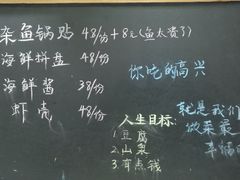 杂鱼锅贴 48/份+8元(鱼太贵了)
海鲜拼盘 48/份
海鲜酱 38/份
虾壳 48/份
你吃的高兴
就是我们
做菜最
幸福的
人生目标:
1.豆腐
2.山泉
3.有点钱